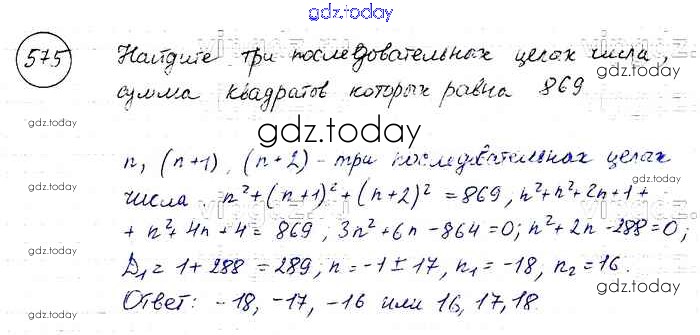 gdz.today
575 Найдите три последовательных целых числа,
сумма квадратов которых равна 869
gdz.today
gdz.today
gdz.today
n, (n+1), (n+2) - три последовательных целых
числа. n²+(n+1)²+(n+2)² = 869, n²+n²+2n+1+
+ n²+4n+4 = 869, 3n²+6n-864=0; n²+2n-288=0;
gdz.today
gdz.today
D₁ = 1+288 = 289, n = -1 ± 17, n₁ = -18, n₂ = 16.
Ответ: -18, -17, -16 или 16, 17, 18.
gdz.today
gdz.today
gdz.today